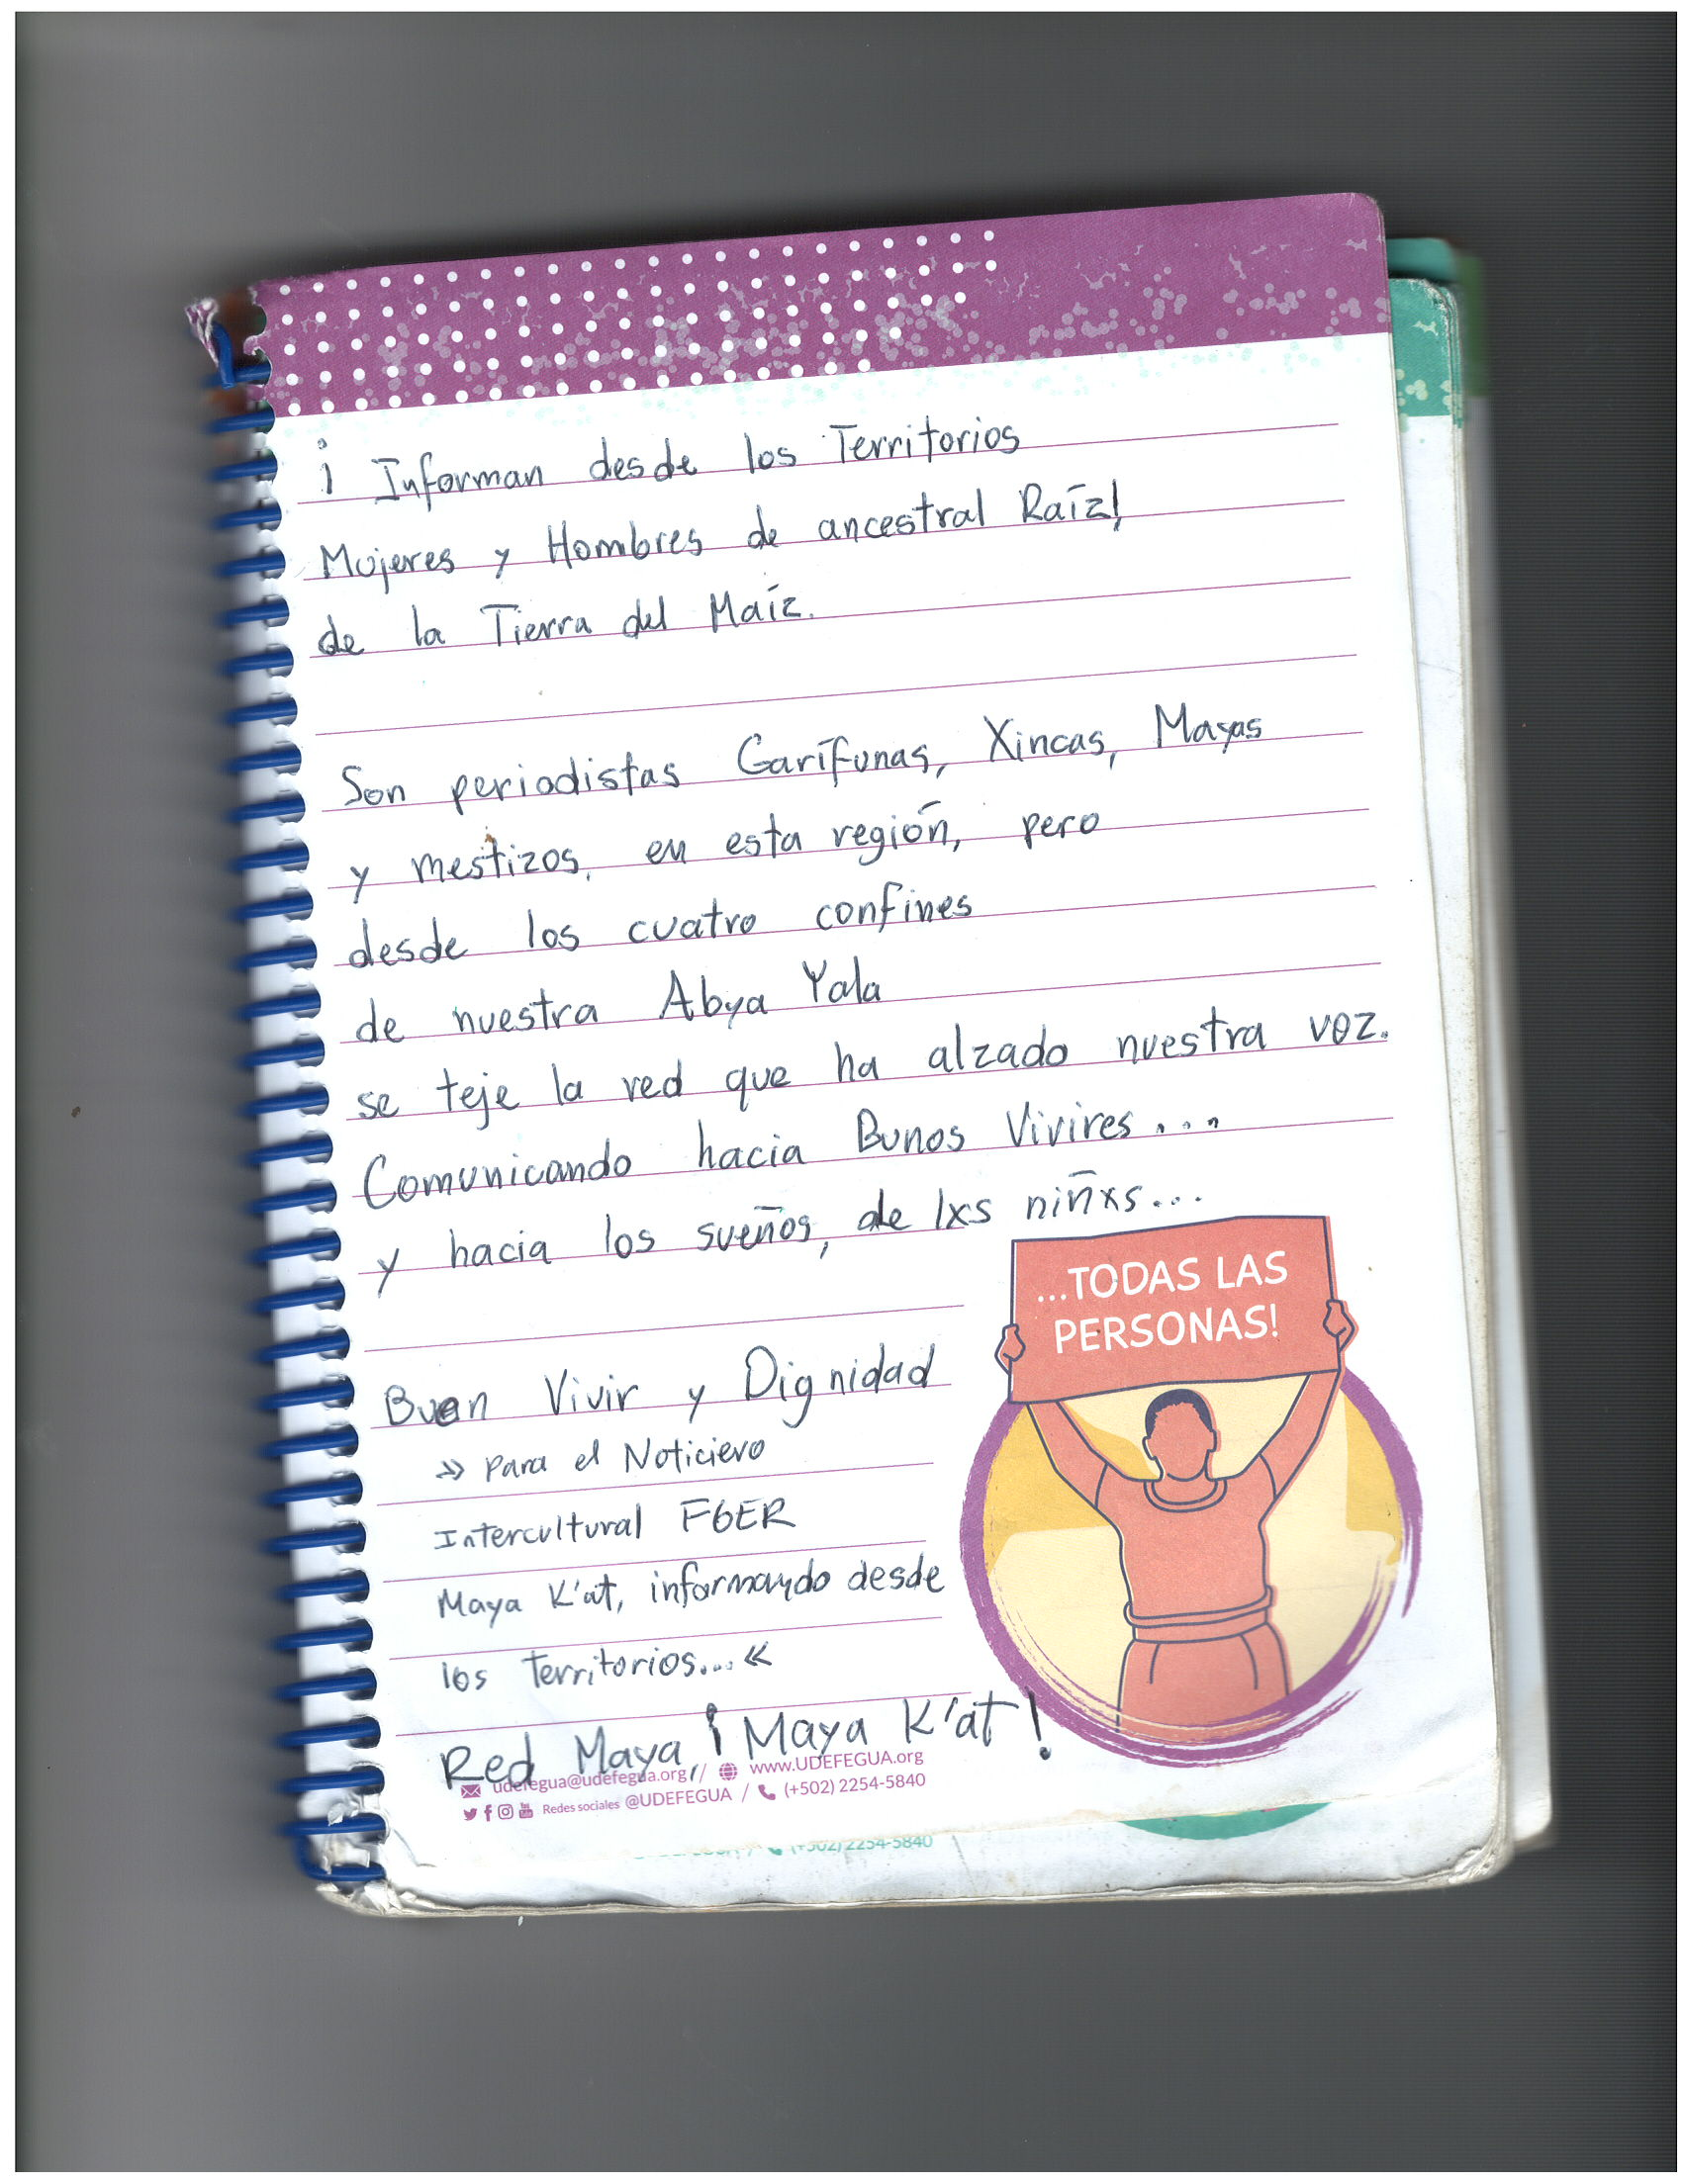 ¡ Informan desde los Territorios
Mujeres y Hombres de ancestral Raíz!
de la Tierra del Maíz.
Son periodistas Garífunas, Xincas, Mayas
y mestizos, en esta región, pero
desde los cuatro confines
de nuestra Abya Yala
se teje la red que ha alzado nuestra voz.
Comunicando hacia Bunos Vivires...
y hacia los sueños, de lxs niñxs...
...TODAS LAS
PERSONAS!
Buen Vivir y Dignidad
» Para el Noticiero
Intercultural FGER
Maya K'at, informando desde
los Territorios... «
Red Maya, ¡Maya K'at!
udefegua@udefegua.org / www.UDEFEGUA.org
Redes sociales @UDEFEGUA / (+502) 2254-5840
(+502) 2254-5840